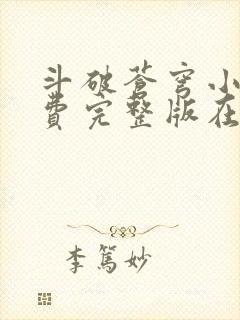 斗破苍穹小
费完整版在
李篤妙